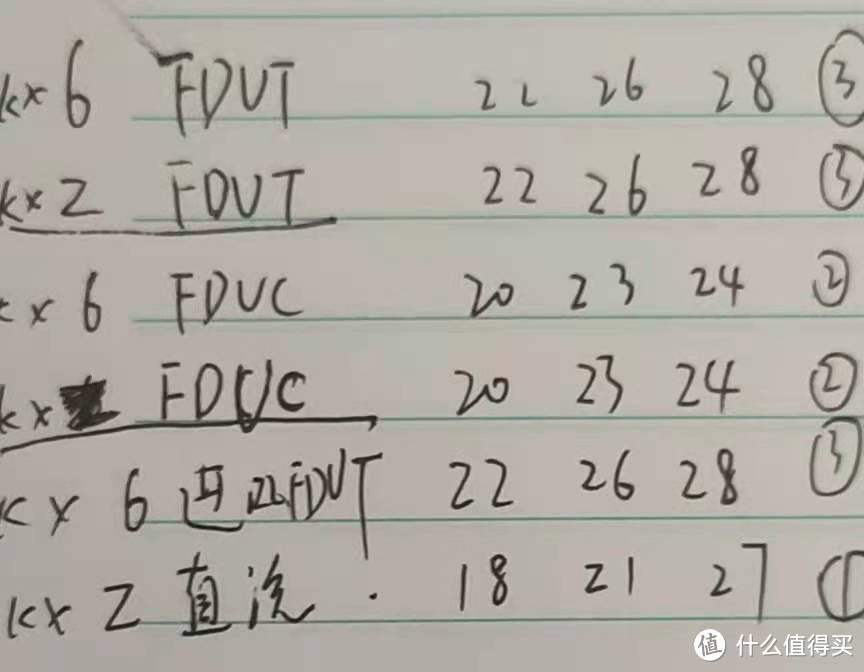 kx 6 FDUT 22 26 28 ③
kx Z FDUT 22 26 28 ③
x 6 FDUC 20 23 24 ②
kx FDUC 20 23 24 ②
kx 6 FDUT 22 26 28 ③
kx Z 直流 . 18 21 27 ①
值 什么值得买